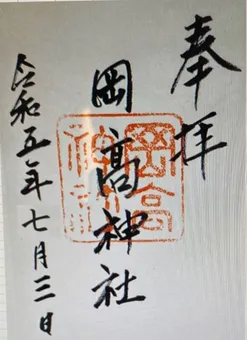 奉拝
岡高神社
岡高神社
令和五年七月三日